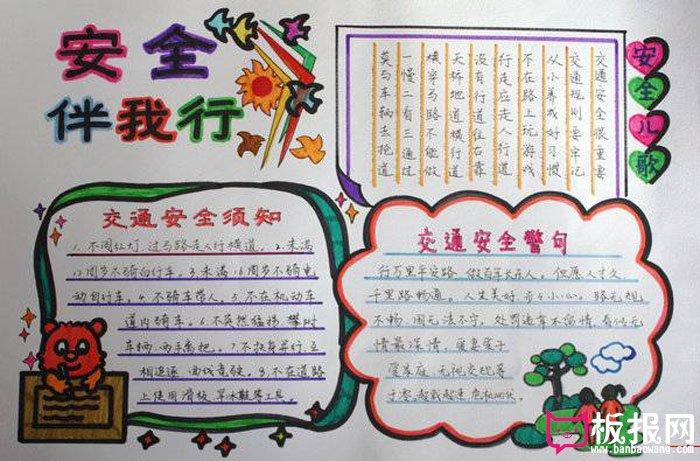 安全
伴我行
安全儿歌
交通安全很重要
交通规则要牢记
从小养成好习惯
不在路上玩游戏
行走应走人行道
没有行道往右靠
天桥地道横行道
横穿马路不能做
一慢二看三通过
莫与车辆去抢道
交通安全须知
1、不闯红灯,过马路走人行横道。2、未满
12周岁不骑自行车。3、未满16周岁不骑电
动自行车。4、不骑车带人。5、不在机动车
道内骑车。6、不突然猛拐 攀附
车辆 两手离把。7、不扶身并行互
相追逐 曲线竞驶。8、不在道路
上使用滑板、旱冰鞋等工具。
交通安全警句
行万里平安路 做百年长乐人。但愿人长久
千里路畅通。人生美好 步步小心。路无规
不畅 国无法不宁。处罚违章不留情 看似无
情最深情。
板报网
www.banbaowang.com